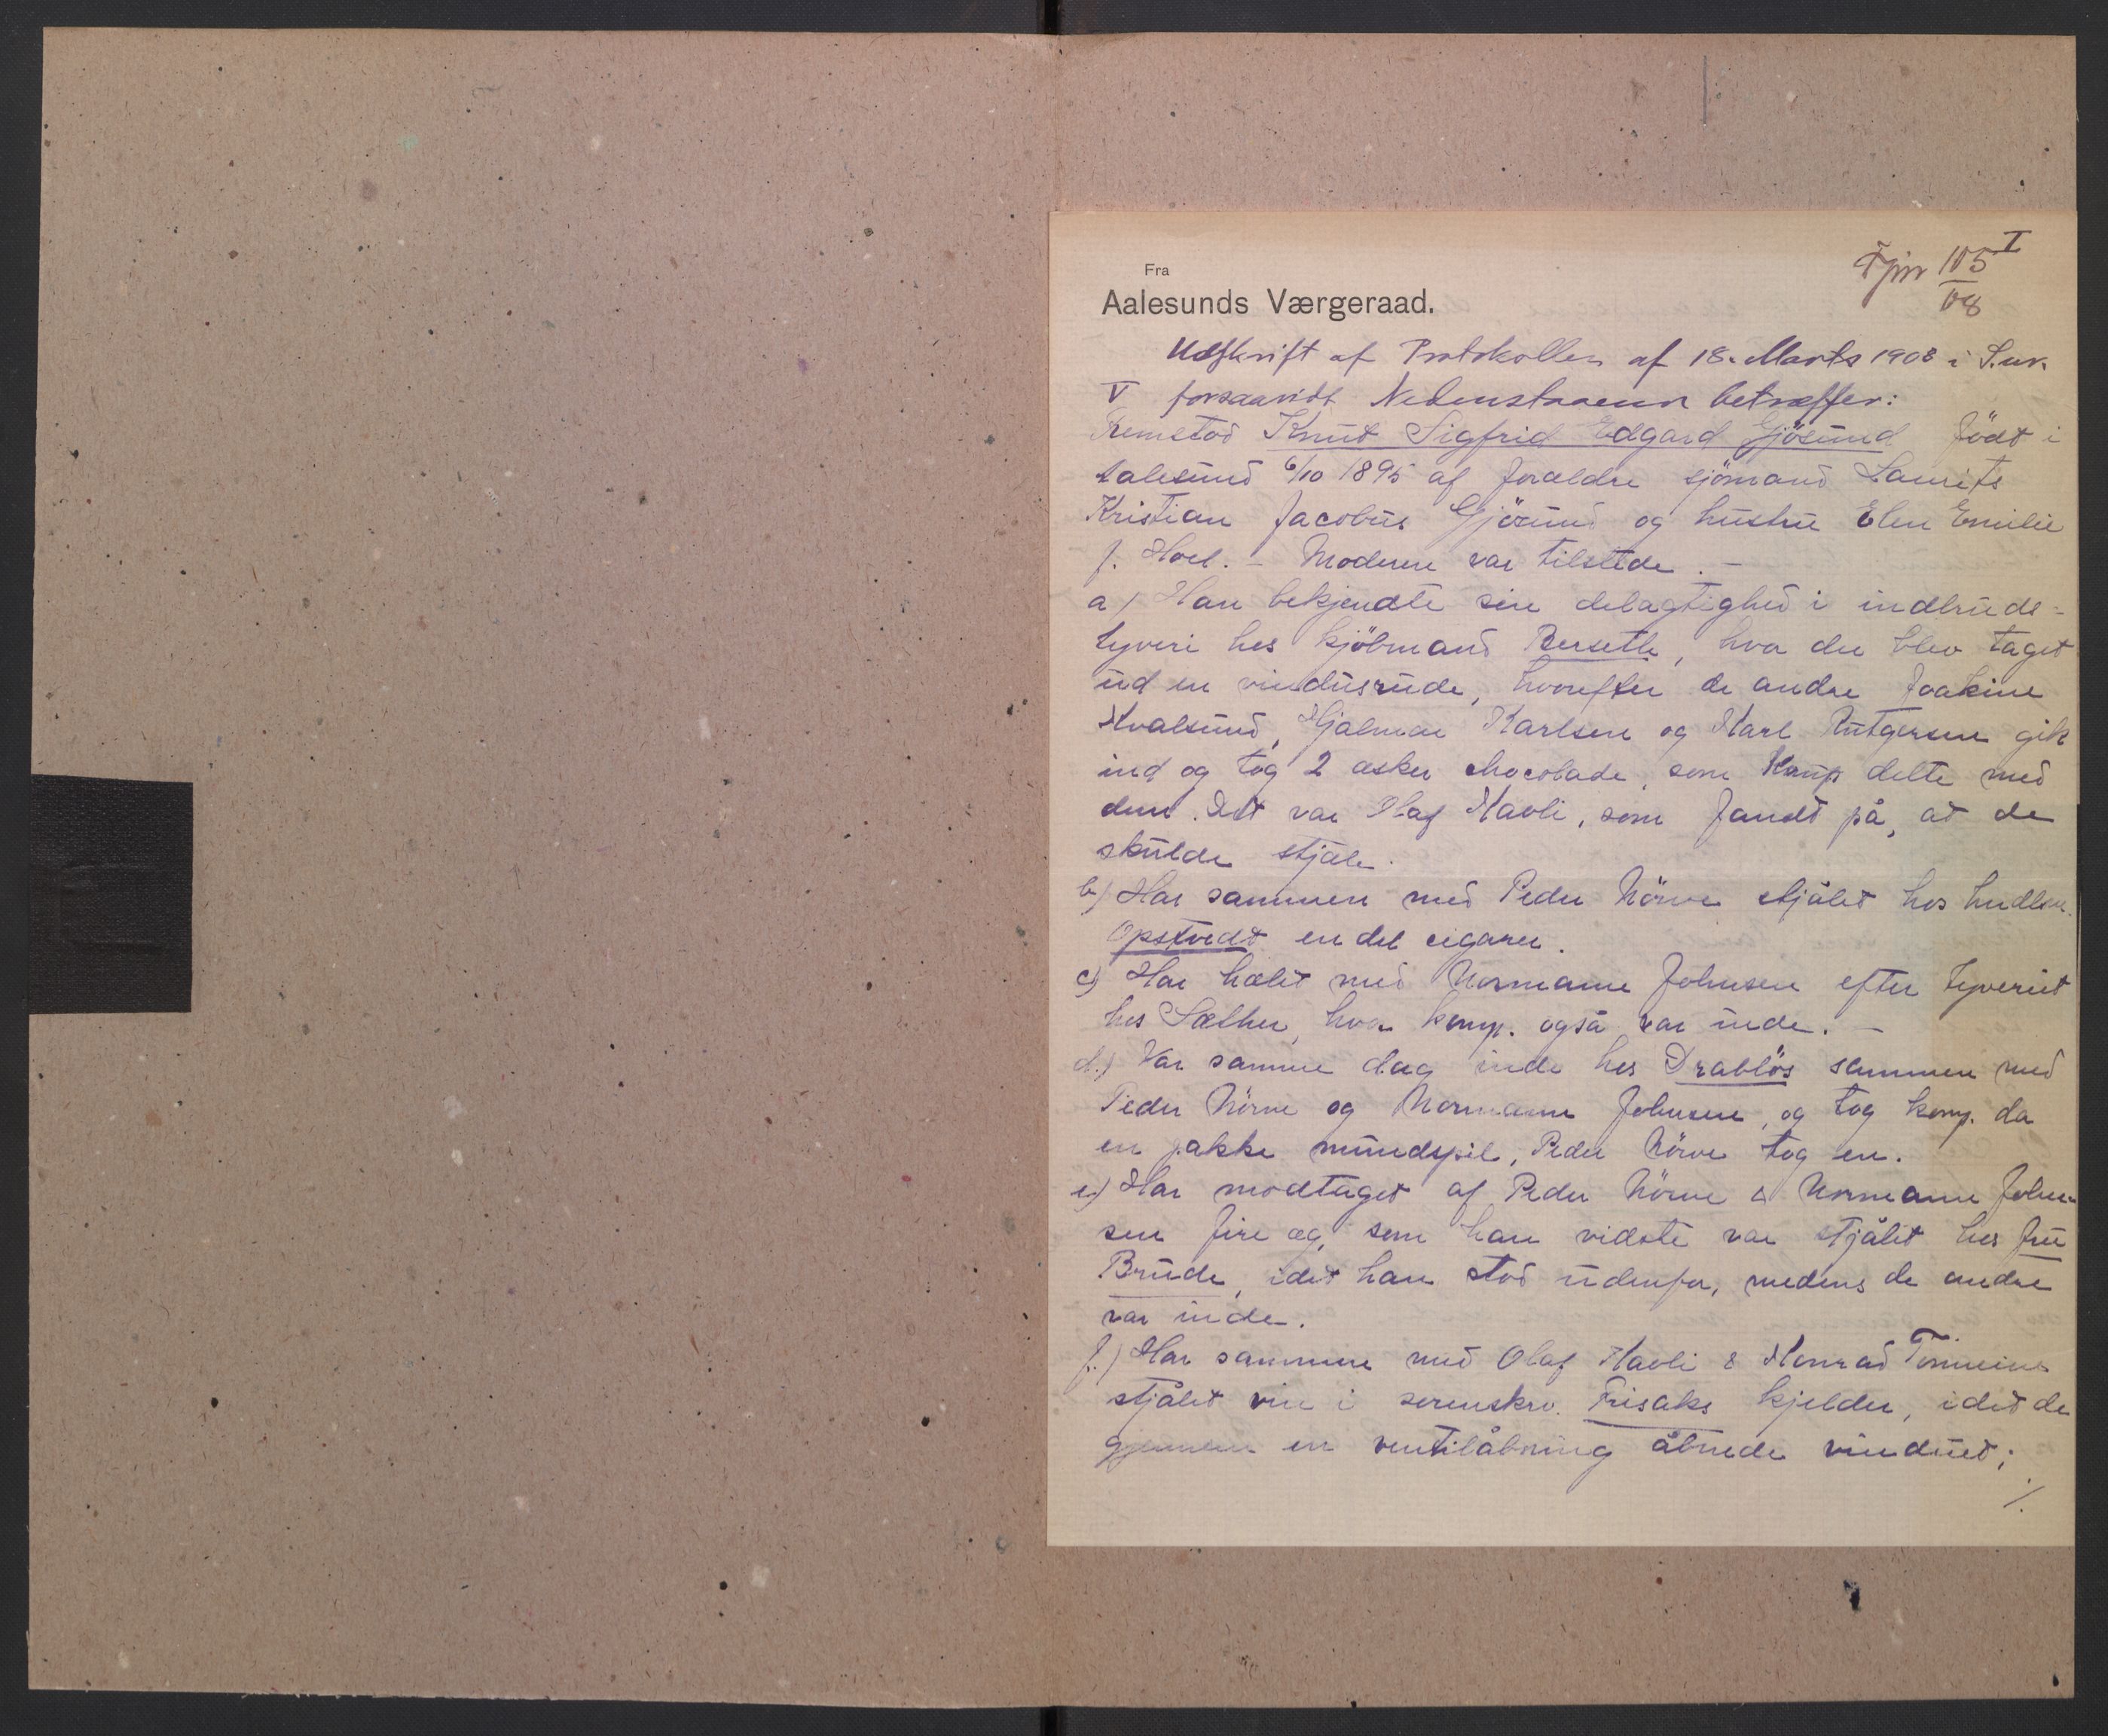 Fjnr 105 I
08
Fra
Aalesunds Værgeraad.
Udskrift af Protokollen af 18. Marts 1908 i S.nr.
V forsaavidt Nedenstaaende betræffer:
Fremstod Knut Sigfrid Edgard Gjösund födt i
Aalesund 6/10 1895 af forældre sjömand Laurits
Kristian Jacobus Gjösund og hustru Elen Emilie
f. Hoel. - Moderen var tilstede. -
a) Han bekjendte sin delagtighed i indbruds-
tyveri hos kjöbmand Berseth, hvor der blev taget
ud en vindusrude, hvorefter de andre Joakim
Hvalsund, Hjalmar Karlsen og Karl Rutgersen gik
ind og tog 2 æsker chocolade, som Komp delte med
dem. Det var Olaf Havli, som fandt på, at de
skulde stjæle.
b) Har sammen med Peder Nörve stjålet hos hndlsm.
Opstvedt en del cigarer.
c) Har hælet med Normann Johnsen efter tyveriet
hos Sæther, hvor komp. også var inde. -
d.) Var samme dag inde hos Drablös sammen med
Peder Nörve og Normann Johnsen, og tog komp. da
en pakke mundspil, Peder Nörve tog en.
e.) Har modtaget af Peder Nörve & Normann John-
sen fire æg, som han vidste var stjålet hos fru
Brude, idet han stod udenfor, medens de andre
var inde.
f.) Har sammen med Olaf Havli & Konrad
stjålet vin i sorenskrv. Frisaks kjelder, idet de
gjennem en ventilåbning åbnede vinduet;
/.